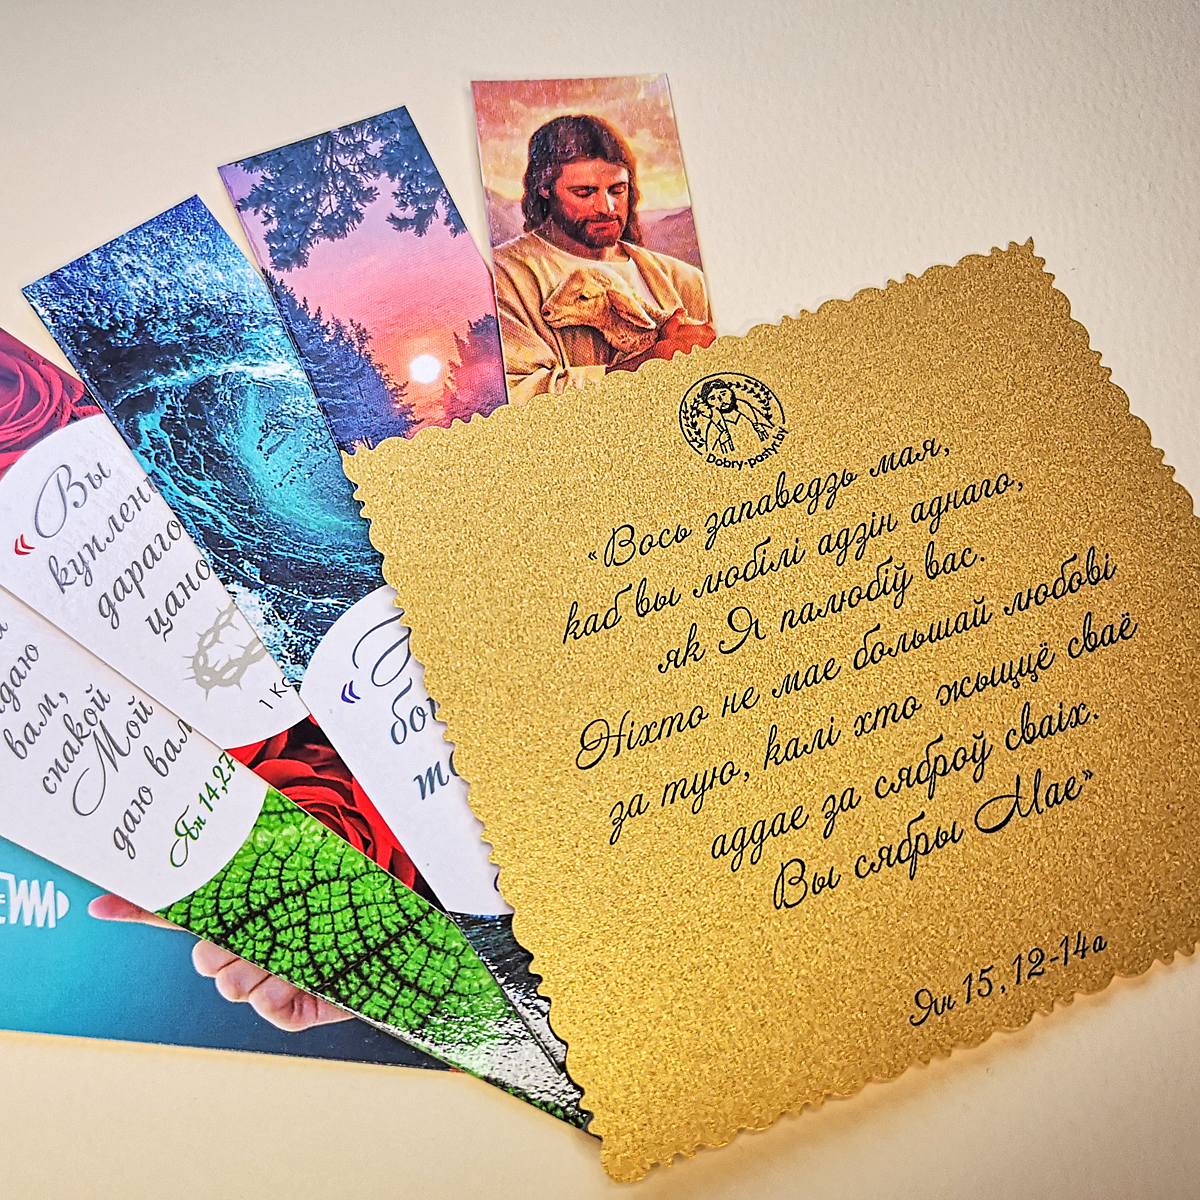 Dobry-pastyr.by
«Вось запаведзь мая,
каб вы любілі адзін аднаго,
як Я палюбіў вас.
Ніхто не мае большай любові
за тую, калі хто жыццё сваё
аддае за сяброў сваіх.
Вы сябры Мае»
Ян 15, 12-14а
«Вы
куплен
дараго
цано
1 К
«
бо
вам,
спакой
Мой
даю вам
Ян 14,27